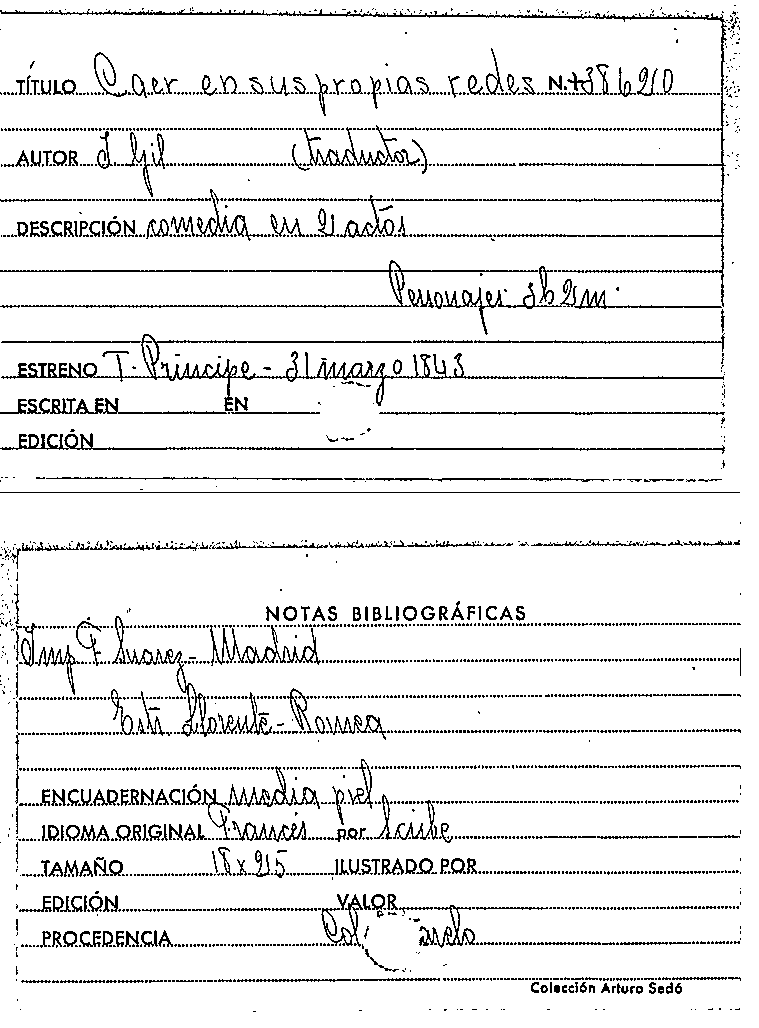 TÍTULO Caer en sus propias redes N.+38620
AUTOR I Gil (traductor)
DESCRIPCIÓN comedia en 2 actos
Personajes 3h 2m.
ESTRENO T. Príncipe - 31 marzo 1843
ESCRITA EN EN
EDICIÓN
NOTAS BIBLIOGRÁFICAS
Imp F Suarez - Madrid
Estr Llorente - Romea
ENCUADERNACIÓN media piel
IDIOMA ORIGINAL Francés por Scribe
TAMAÑO 18 x 25 ILUSTRADO POR
EDICIÓN VALOR
PROCEDENCIA Col.
Colección Arturo Sedó